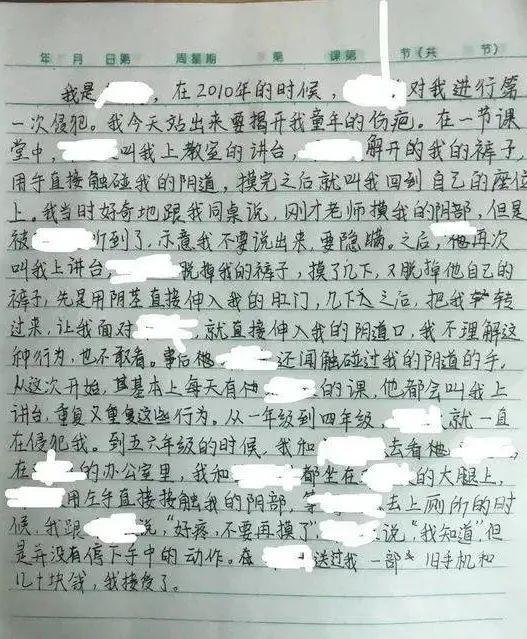 年 月 日第 周星期 第 课第 节(共 节)
我是 ，在2010年的时候， 对我进行第
一次侵犯。我今天站出来要揭开我童年的伤疤。在一节课
堂中， 叫我上教室的讲台， 解开的我的裤子，
用手直接触碰我的阴道，摸完之后就叫我回到自己的座位
上。我当时好奇地跟我同桌说，刚才老师摸我的阴部，但是
被 听到了，示意我不要说出来，要隐瞒。之后，他再次
叫我上讲台， 脱掉我的裤子，摸了几下，又脱掉他自己的
裤子，先是用阴茎直接伸入我的肛门，几下之后，把我转
过来，让我面对 ，就直接伸入我的阴道口，我不理解这
种行为，也不敢看。事后他 还闻触碰过我的阴道的手，
从这次开始，基本上每天有他 的课，他都会叫我上
讲台，重复又重复这些行为。从一年级到四年级， 就一直
在侵犯我。到五六年级的时候，我和 去看他 ，
在 的办公室里，我和 都坐在 的大腿上，
用左手直接接触我的阴部， 去上厕所的时
候，我跟 说，“好疼，不要再摸了” 说，“我知道”但
是并没有停下手中的动作。 送过我一部 旧手机和
几十块钱，我接受了。